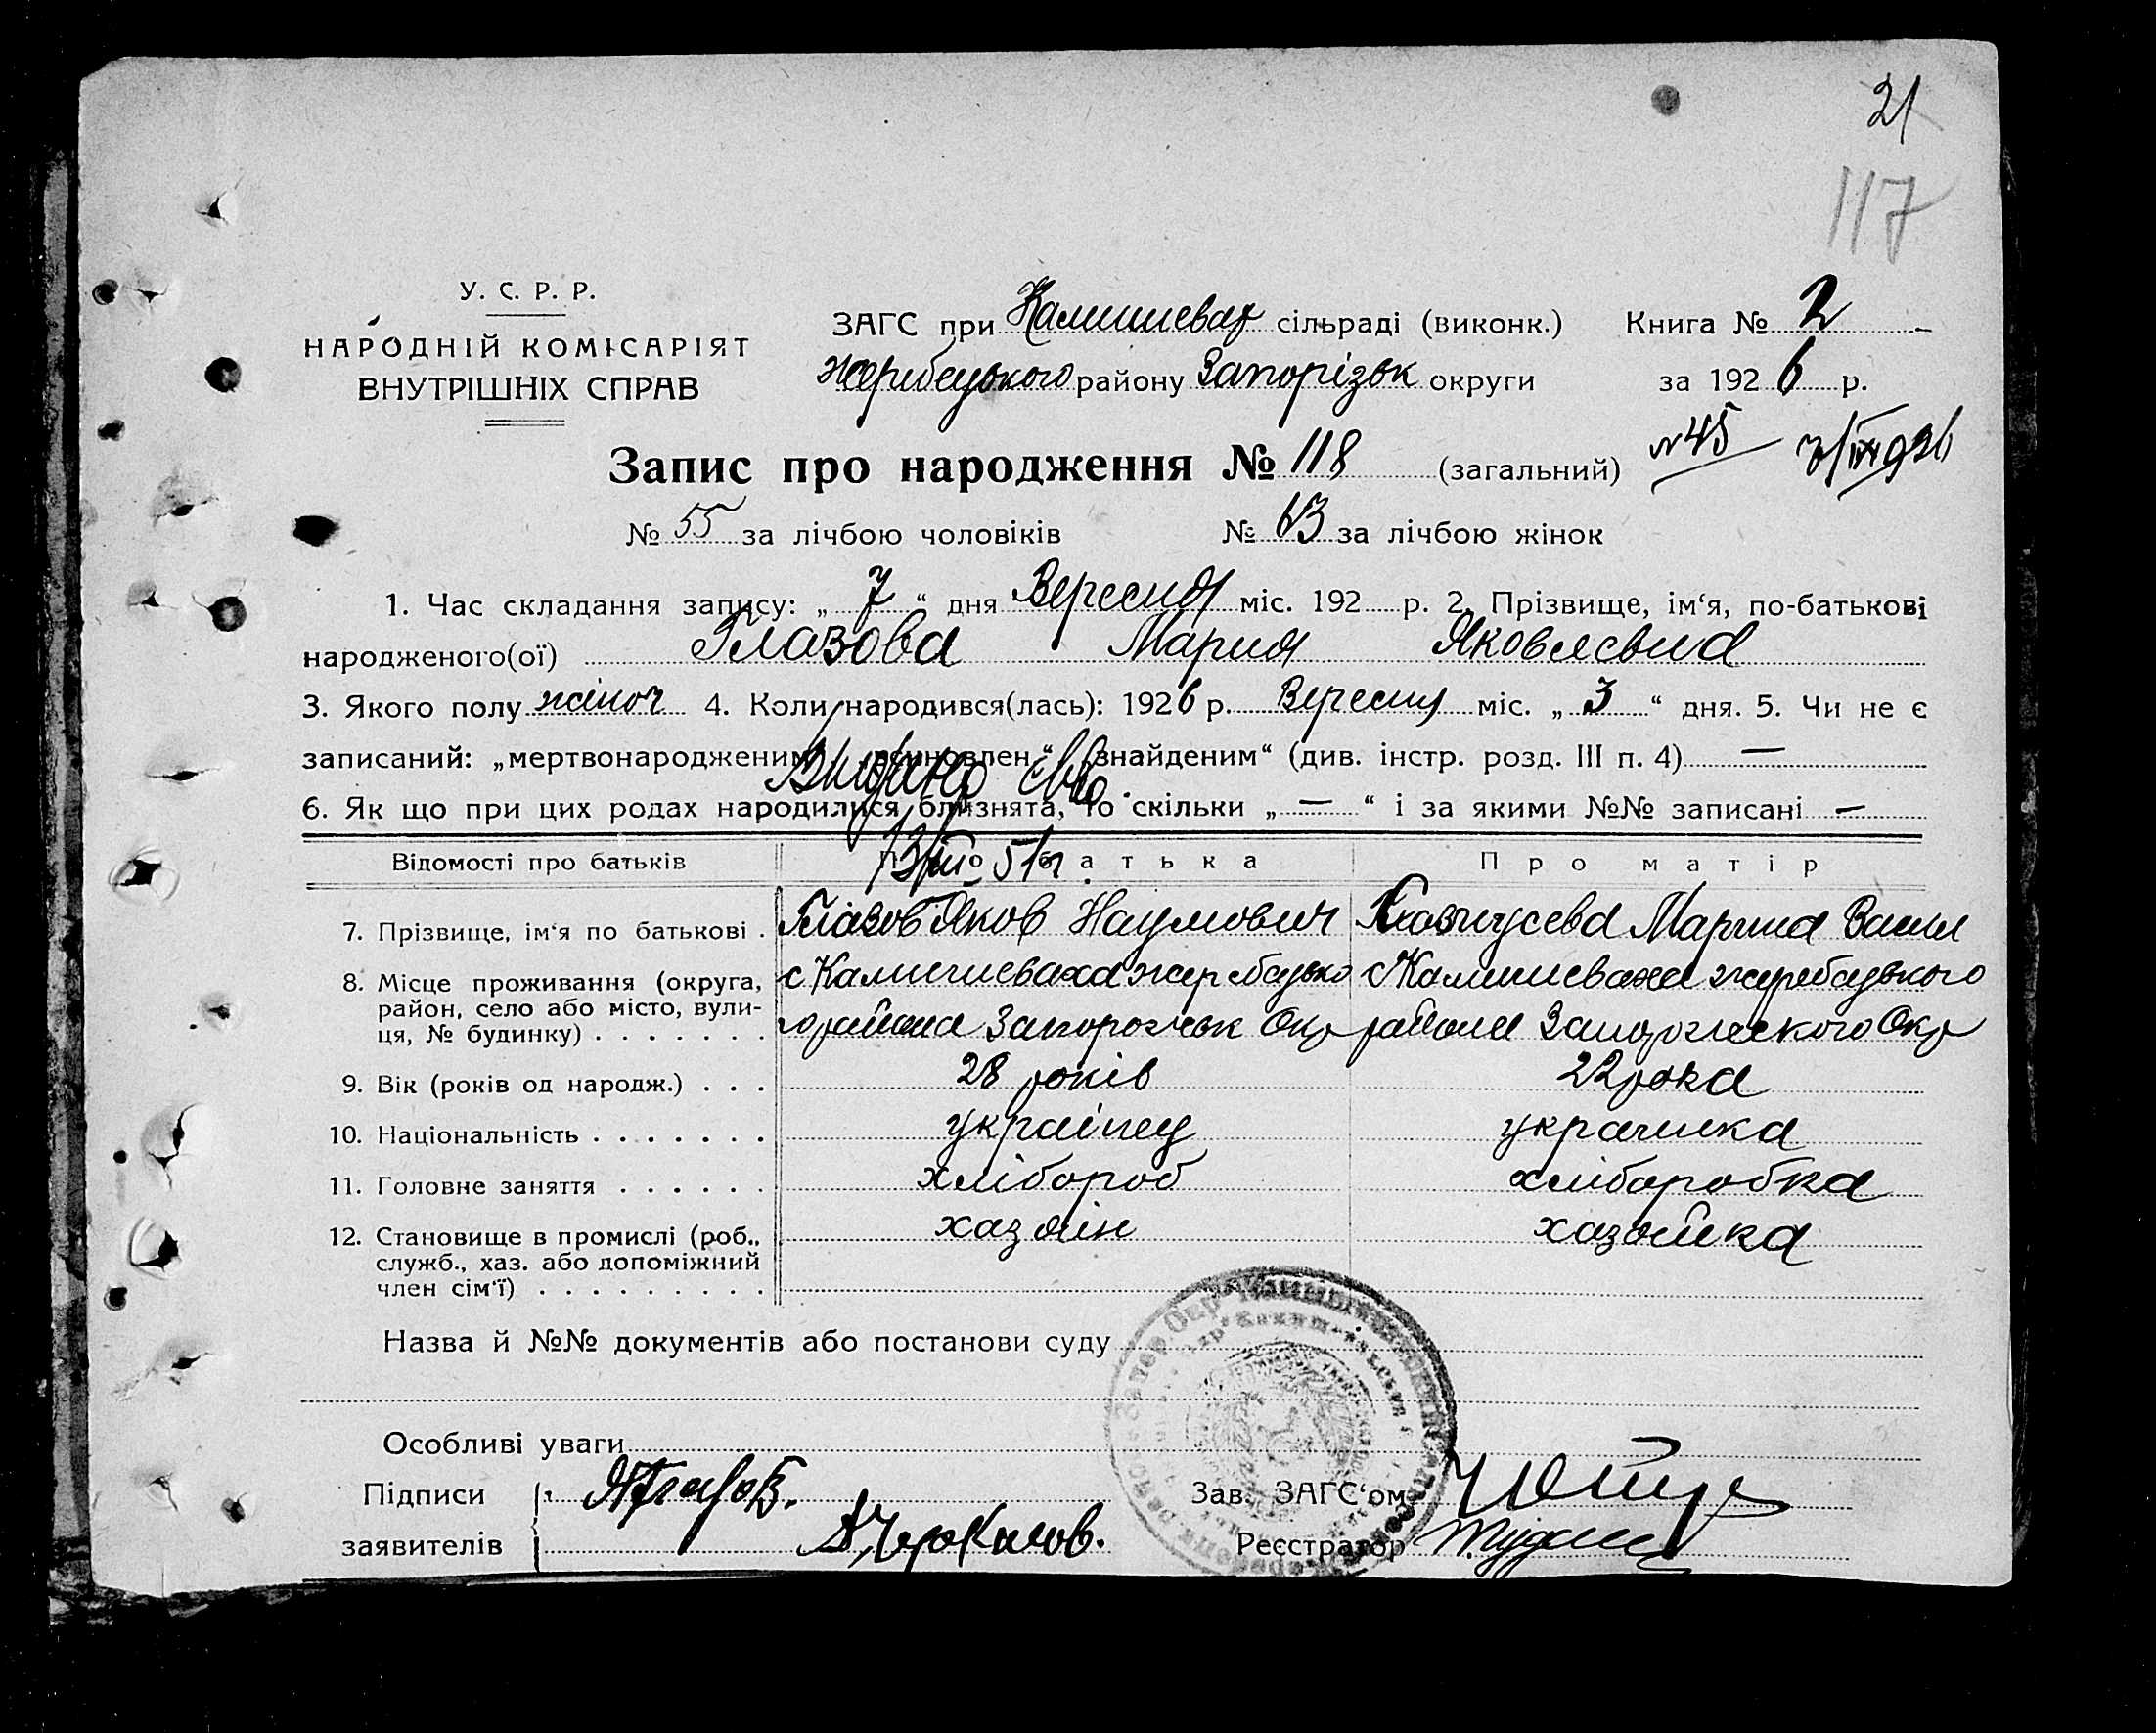 21
117
У. С. Р. Р.
НАРОДНІЙ КОМІСАРІЯТ
ВНУТРІШНІХ СПРАВ
ЗАГС при Камишеват сільраді (виконк.) Книга № 2
Жеребецького району Запорізьк округи за 1926 р.
Запис про народження № 118 (загальний) № 45
№ 55 за лічбою чоловіків № 63 за лічбою жінок
1. Час складання запису: „ 7 “ дня Вересня міс. 192 р. 2. Прізвище, ім‘я, по-батькові
народженого(ої) Глазова Мария Яковлевна
3. Якого полу жіноч 4. Коли народився(лась): 1926 р. Вересня міс. „ 3 “ дня. 5. Чи не є
записаний: „мертвонародженим знайденим“ (див. інстр. розд. III п. 4) —
Видано
6. Як що при цих родах народилися близнята, то скільки „ — “ і за якими №№ записані —
Відомості про батьків Про батька Про матір
7. Прізвище, ім‘я по батькові . Глазов Яков Наумович Марина Васил
8. Місце проживання (округа, с Камишеваха жеребецько с Камишеваха жеребецького
район, село або місто, вули-
ця, № будинку) . . . . . . . го района Запорожськ Окр района Запорожского Окр
9. Вік (років од народж.) . . . 28 років 22 рока
10. Національність . . . . . . . українец украинка
11. Головне заняття . . . . . . хлібороб хліборобка
12. Становище в промислі (роб., хазяін хазяйка
служб., хаз. або допоміжний
член сім‘ї) . . . . . . . . . .
Назва й №№ документів або постанови суду
Особливі уваги
Підписи Зав. ЗАГС‘ом
заявителів Реєстратор